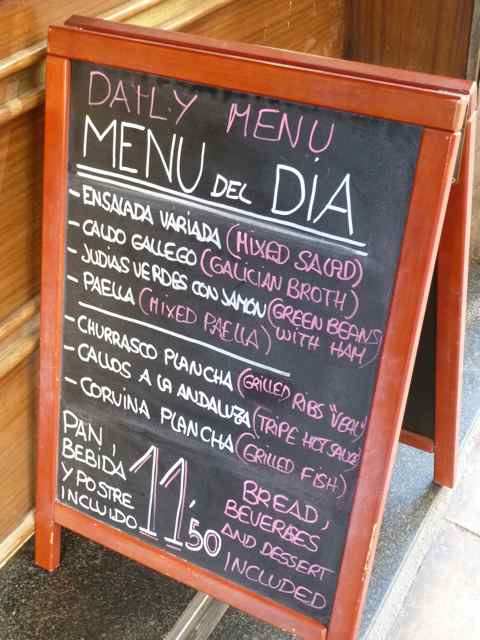 DAILY MENU
MENU DEL DIA
- ENSALADA VARIADA (MIXED SALAD)
- CALDO GALLEGO (GALICIAN BROTH)
- JUDIAS VERDES CON JAMON (GREEN BEANS WITH HAM)
- PAELLA (MIXED PAELLA)
- CHURRASCO PLANCHA (GRILLED RIBS "VEAL")
- CALLOS A LA ANDALUZA (TRIPE HOT SAUCE)
- CORVINA PLANCHA (GRILLED FISH)
PAN,
BEBIDA
Y POSTRE
INCLUIDO
11'50
BREAD,
BEVERAGES
AND DESSERT
INCLUDED